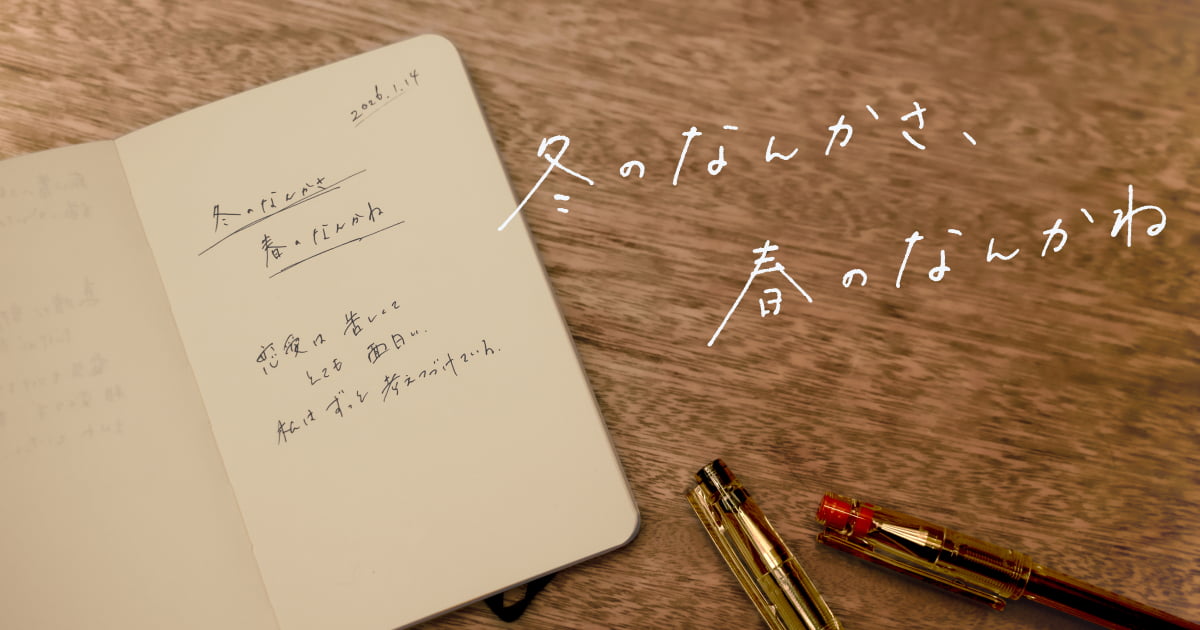 2026.1.14
冬のなんかさ
春のなんかね
恋愛は苦しくて
とても面白い.
私はずっと考えつづけている.
冬のなんかさ、
春のなんかね